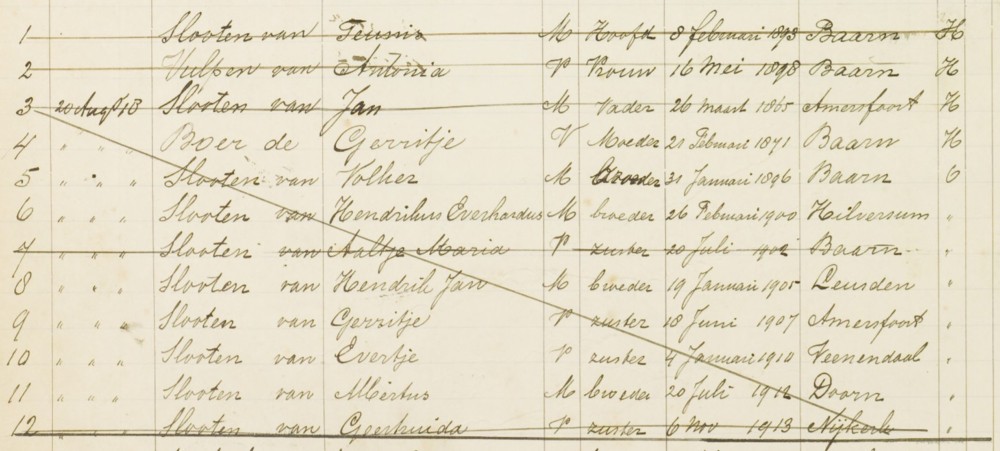 1 Slooten van Teunis M Hoofd 8 februari 1893 Baarn H
2 Vulpen van Antonia V Vrouw 16 Mei 1898 Baarn H
3 20 Aug 18 Slooten van Jan M Vader 26 maart 1865 Amersfoort H
4 " " " Boer de Gerritje V Moeder 21 Februari 1871 Baarn H
5 " " " Slooten van Volker M broeder 31 Januari 1896 Baarn O
6 " " " Slooten van Hendrikus Everhardus M broeder 26 Februari 1900 Hilversum "
7 " " " Slooten van Aaltje Maria V zuster 20 Juli 1902 Baarn "
8 " " " Slooten van Hendrik Jan M broeder 19 Januari 1905 Leusden "
9 " " " Slooten van Gerritje V zuster 18 Juni 1907 Amersfoort "
10 " " " Slooten van Evertje V zuster 4 Januari 1910 Veenendaal "
11 " " " Slooten van Albertus M broeder 20 Juli 1912 Doorn "
12 " " " Slooten van Geertruida V zuster 6 Nov 1913 Nijkerk "